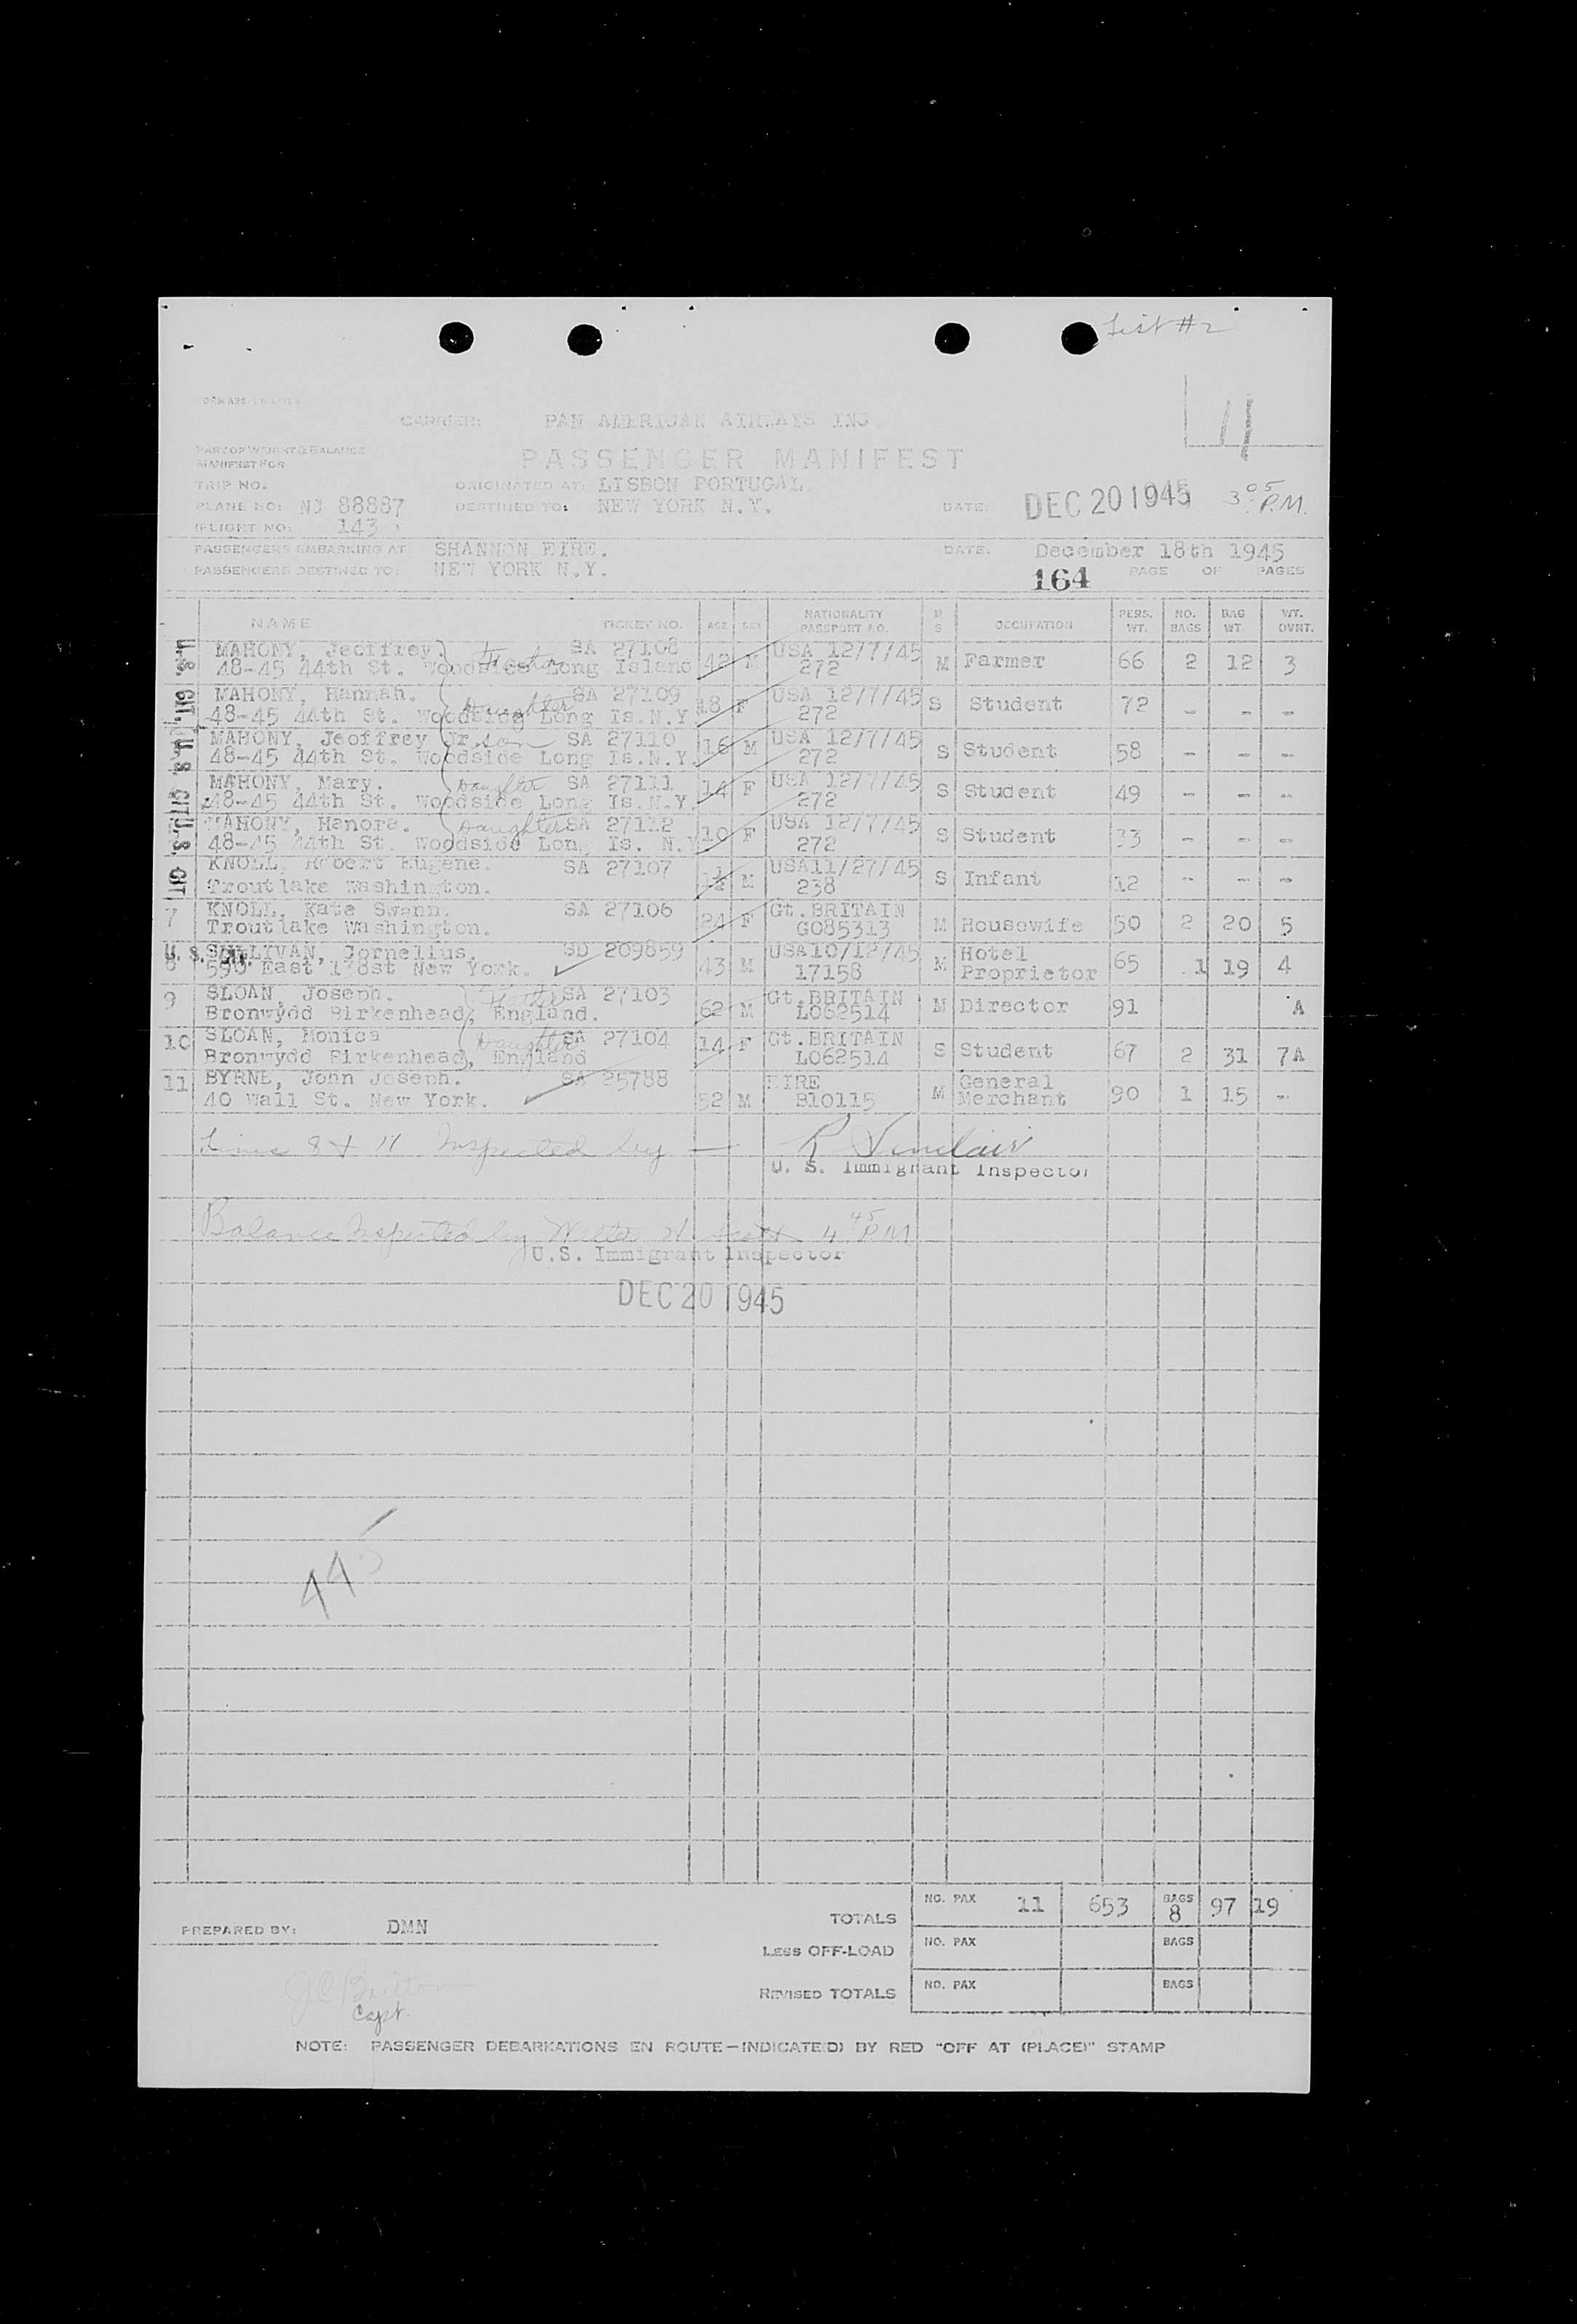 List #2
11
CARRIER: PAN AMERICAN AIRWAYS INC.
PART OF WEIGHT & BALANCE
MANIFEST FOR
PASSENGER MANIFEST
TRIP NO. ORIGINATED AT: LISBON PORTUGAL.
PLANE NO: NC 88887 DESTINED TO: NEW YORK N.Y. DATE: DEC 20 1945 3:05 P.M.
FLIGHT NO: 143
PASSENGERS EMBARKING AT: SHANNON EIRE. DATE: December 18th 1945
PASSENGERS DESTINED TO: NEW YORK N.Y. 164 PAGE OF PAGES
NAME TICKET NO. AGE SEX NATIONALITY PASSPORT NO. M S OCCUPATION PERS. WT. NO. BAGS BAG WT. WT. OVWT.
U.S. CIT. U.S. CIT. U.S. CIT
MAHONY, Jeoffrey Father SA 27108 42 M USA 12/7/45 M Farmer 66 2 12 3
48-45 44th St. Woodside Long Island 272
MAHONY, Hannah. Daughter SA 27109 18 F USA 12/7/45 S Student 72 - - -
48-45 44th St. Woodside Long Is.N.Y. 272
MAHONY, Jeoffrey Jr. son SA 27110 16 M USA 12/7/45 S Student 58 - - -
48-45 44th St. Woodside Long Is.N.Y. 272
MAHONY, Mary. Daughter SA 27111 14 F USA 12/7/45 S Student 49 - - -
48-45 44th St. Woodside Long Is.N.Y. 272
MAHONY, Hanora. Daughter SA 27112 10 F USA 12/7/45 S Student 33 - - -
48-45 44th St. Woodside Long Is. N.Y 272
KNOLL, Robert Eugene. SA 27107 1½ M USA11/27/45 S Infant 12 - - -
Troutlake Washington. 238
7 KNOLL, Kate Swann. SA 27106 24 F Gt.BRITAIN M Housewife 50 2 20 5
Troutlake Washington. G085313
U. S. CIT.
8 SULLIVAN, Cornelius. SD 209859 43 M USA10/12/45 M Hotel Proprietor 65 1 19 4
590 East 138st New York. 17158
9 SLOAN, Joseph. Father SA 27103 62 M Gt.BRITAIN M Director 91 A
Bronwydd Birkenhead, England. L062514
10 SLOAN, Monica Daughter SA 27104 14 F Gt.BRITAIN S Student 67 2 31 7A
Bronwydd Birkenhead, England L062514
11 BYRNE, John Joseph. SA 25788 52 M EIRE M General Merchant 90 1 15 -
40 Wall St. New York. B10115
Lines 8 & 11 Inspected by — R Sinclair
U. S. Immigrant Inspector
Balance Inspected by Walter H. Scott 4 45 P.M
U.S. Immigrant Inspector
DEC 20 1945
TOTALS NO. PAX 11 653 BAGS 8 97 19
PREPARED BY: DMN
LESS OFF-LOAD NO. PAX BAGS
REVISED TOTALS NO. PAX BAGS
J C Britton
Capt.
NOTE: PASSENGER DEBARKATIONS EN ROUTE—INDICATE(D) BY RED "OFF AT (PLACE)" STAMP